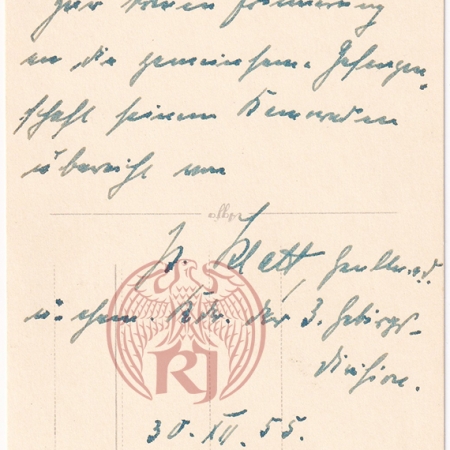 zur steten Erinnerung
an die gemeinsame Gefangen-
schaft seinem Kameraden
überreicht von
P. Klatt, Genltn. a. D.
u. ehem. Kdr. der 3. Gebirgs-
division.
RJ
30.XII.55.